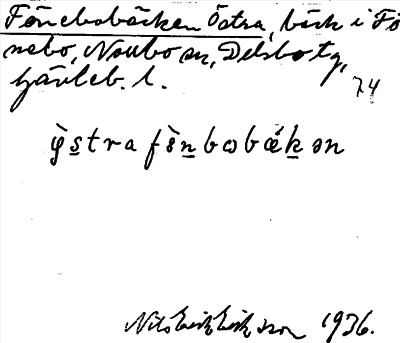 Fönebobäcken Östra, bäck i Fö
nebo, Norrbo sn, Delsbo tg,
Gävleb. l.
74
ỳstra fø̀nbωbæ̀kən
Nils Erik Eriksson 1936.